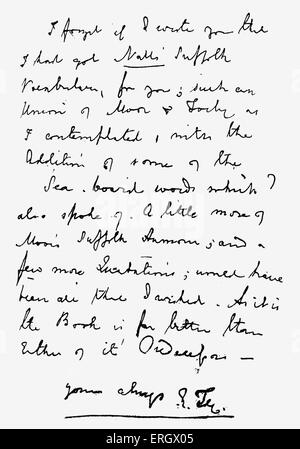 I forget if I wrote you that
I had got Nall's Suffolk
Vocabulary, for you; such an
Union of Moor & Forby as
I contemplated, with the
Addition of some of the
Sea-board words which I
also spoke of. A little more of
Moor's Suffolk Humour, and a
few more Quotations; would have
been all that I wished. As it is
the Book is far better than
Either of it's Predecessors —
Yours always E.
alamy
ERGX05